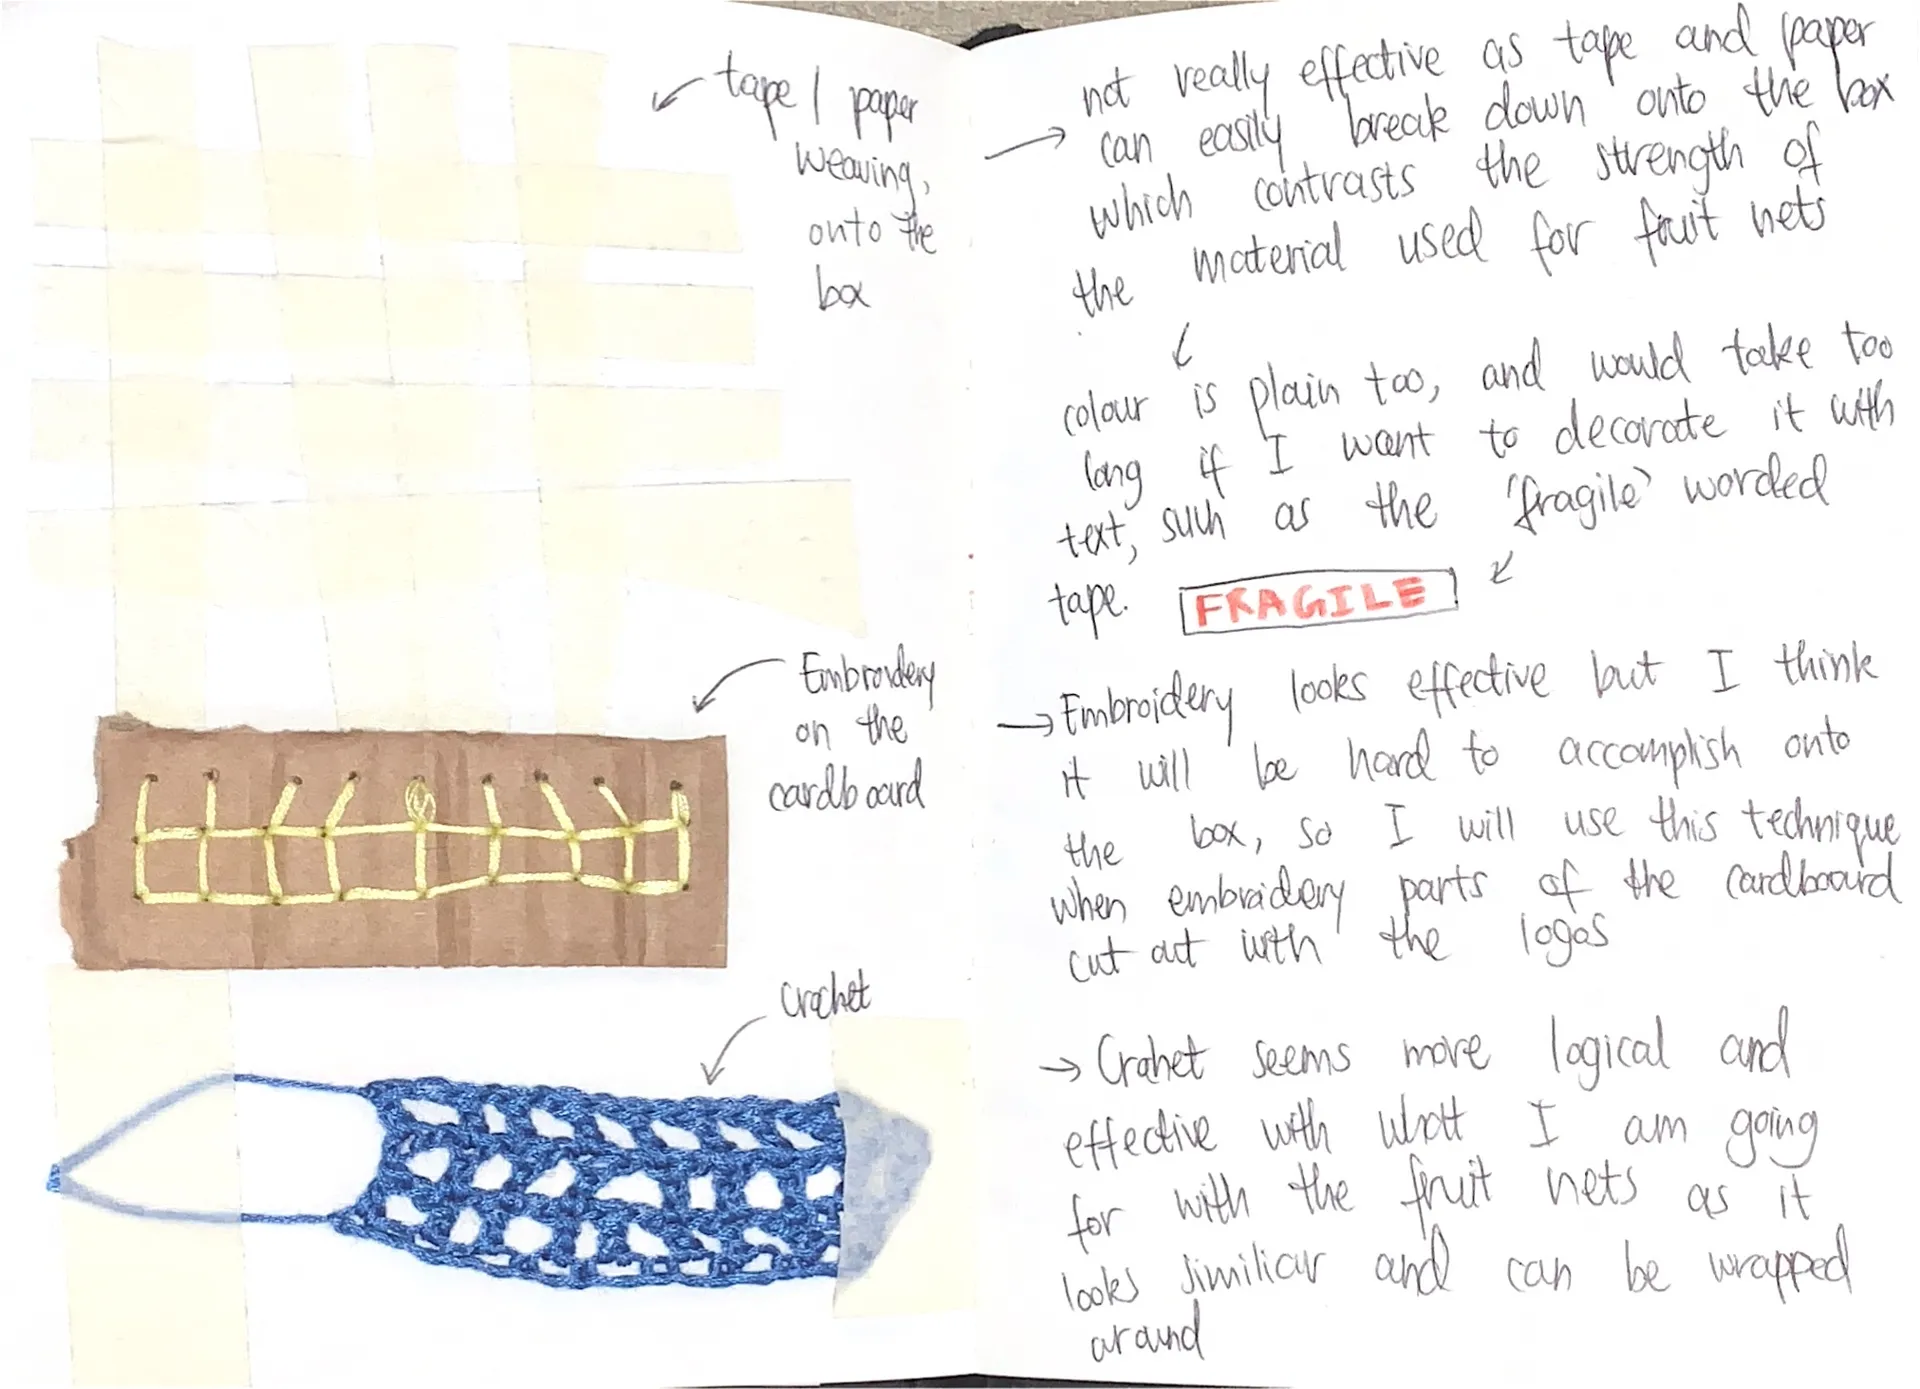 tape / paper
weaving,
onto the
box
not really effective as tape and paper
can easily break down onto the box
which contrasts the strength of
the material used for fruit nets
colour is plain too, and would take too
long if I want to decorate it with
text, such as the 'fragile' worded
tape. FRAGILE
Embroidery
on the
cardboard
Embroidery looks effective but I think
it will be hard to accomplish onto
the box, so I will use this technique
when embroidery parts of the cardboard
cut out with the logos
Crochet
Crohet seems more logical and
effective with whatt I am going
for with the fruit nets as it
looks similiar and can be wrapped
around